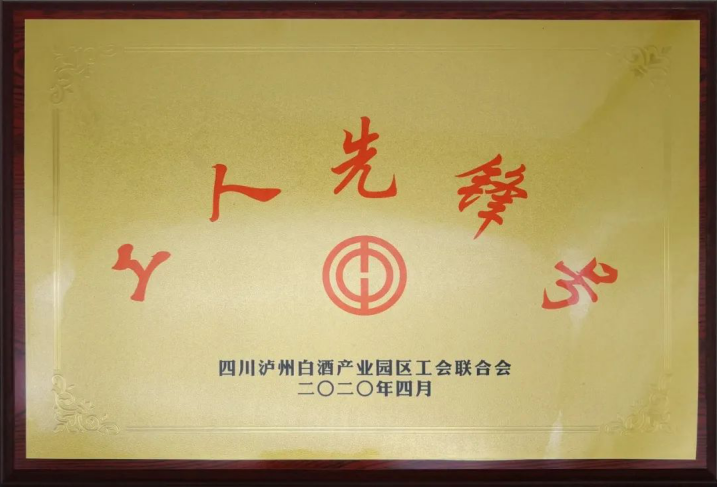 工人先锋号
四川泸州白酒产业园区工会联合会
二〇二〇年四月